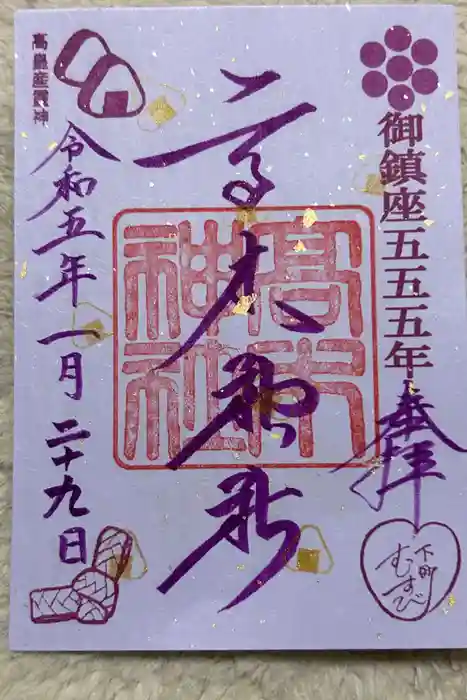 御鎮座五五五年
奉拝
下町
むすび
高木神社
高木神社
高皇産霊神
令和五年一月二十九日